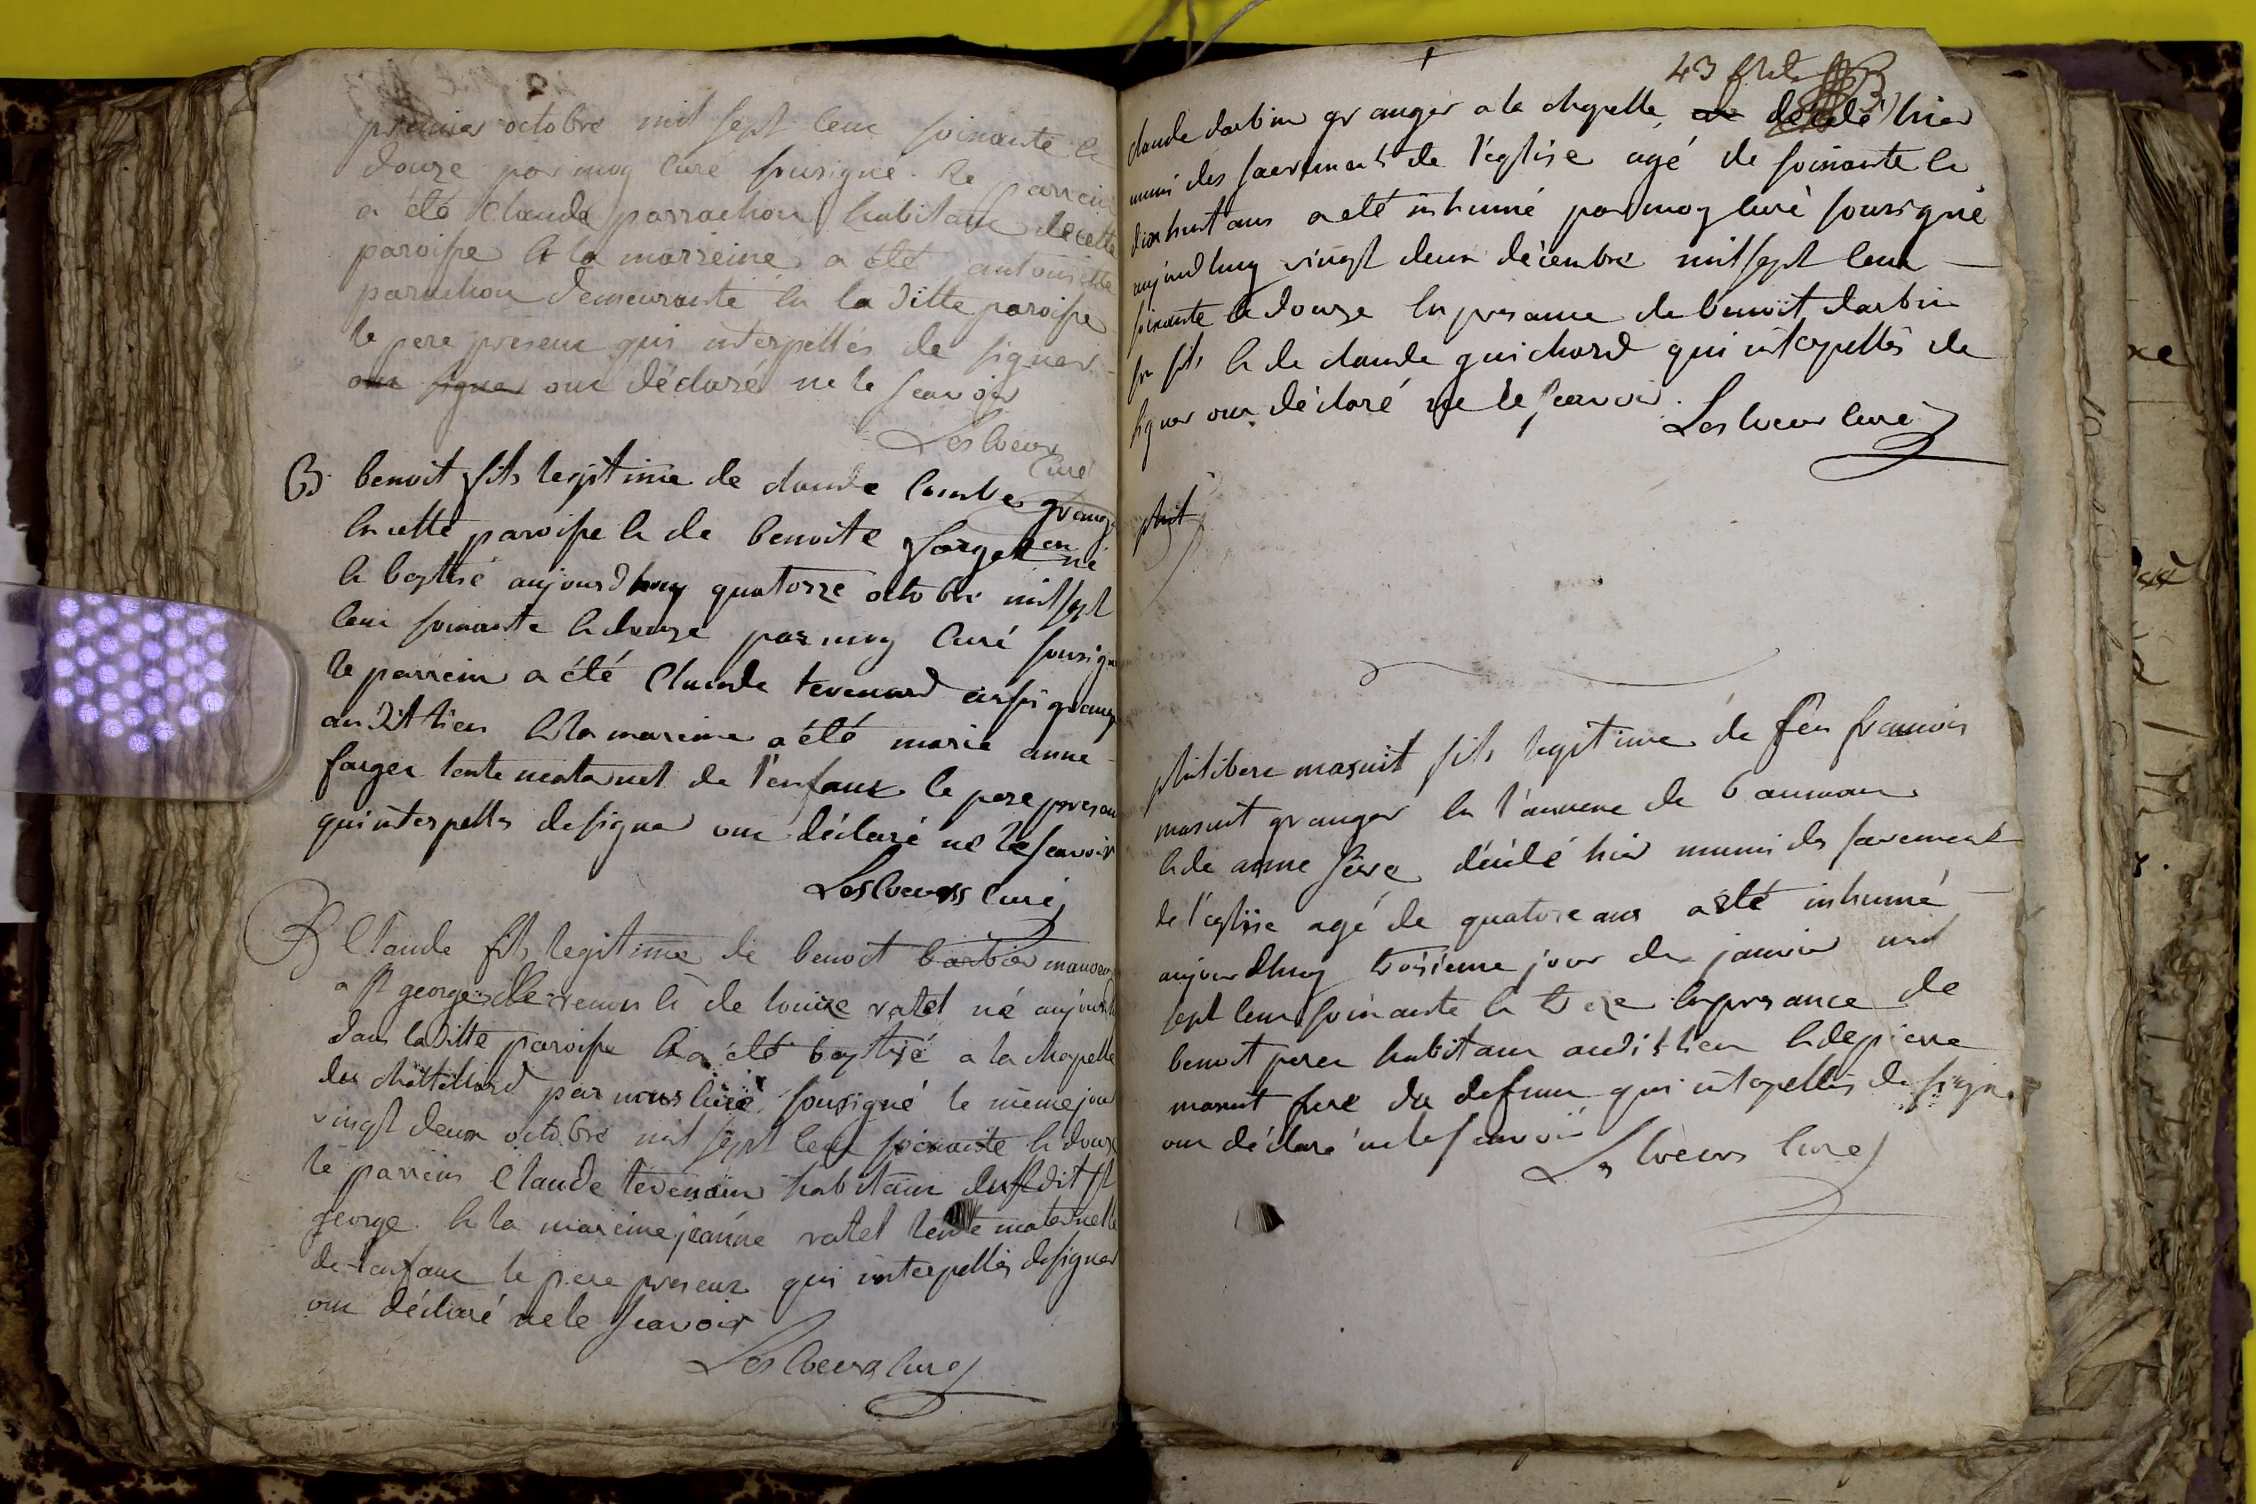 premier octobre mil sept cent soixante et
douze par moy curé sousigné. le parrein
a été claude parrachon habitant de cette
paroisse et la marreine a été antoinette
parachon demeurante en la ditte paroisse
le pere present qui interpellés de signer
ont signer ont déclaré ne le scavoir
Curé
B. benoit fils legitime de claude combe grang
en cette paroisse et de benoite farget en né
et baptisé aujourdhuy quatorze octobre mil sept
cent soixante et douze par moy curé sousigné
le parrein a été Claude tevenard aussi grang
au dit lieu et la mareine a été marie anne
farget tente maternel de l'enfant le pere present
qui interpellés de signer ont déclaré ne le scavoir
curé
B Claude fils legitime de benoit barbier manouv
a st george de renon et de louise ratel né aujourd
dans la ditte paroisse et a été baptisé a la chapelle
du châtellard par nous curé sousigné le même jour
vingt deux octobre mil sept cent soixante et douze
le parrein Claude tevenain habitant dudit st
george. et la mareine jeanne ratel tente maternelle
de l'enfant le pere present qui interpellés de signer
ont déclaré ne le scavoir
curé
43
claude darbin granger a la chapelle décédé hier
muni des sacrements de l'église agé de soixante et
dix huit ans a été inhumé par moy curé sousigné
aujourdhuy vingt deux décembre mil sept cent
soixante et douze en presance de benoit darbin
son fils et de claude guichard qui interpellés de
signer ont déclaré ne le scavoir.
curé
philibert masuit fils legitime de feu francois
masuit granger en l'aumone de
et de anne décédé hier muni des sacrements
de l'eglise agé de quatorze ans a été inhumé
aujourdhuy troisieme jour de janvier mil
sept cent soixante et treze en presance de
benoit perer habitant audit lieu et de pierre
masuit frere du defunt qui interpellés de signer
ont déclaré ne le scavoir
curé